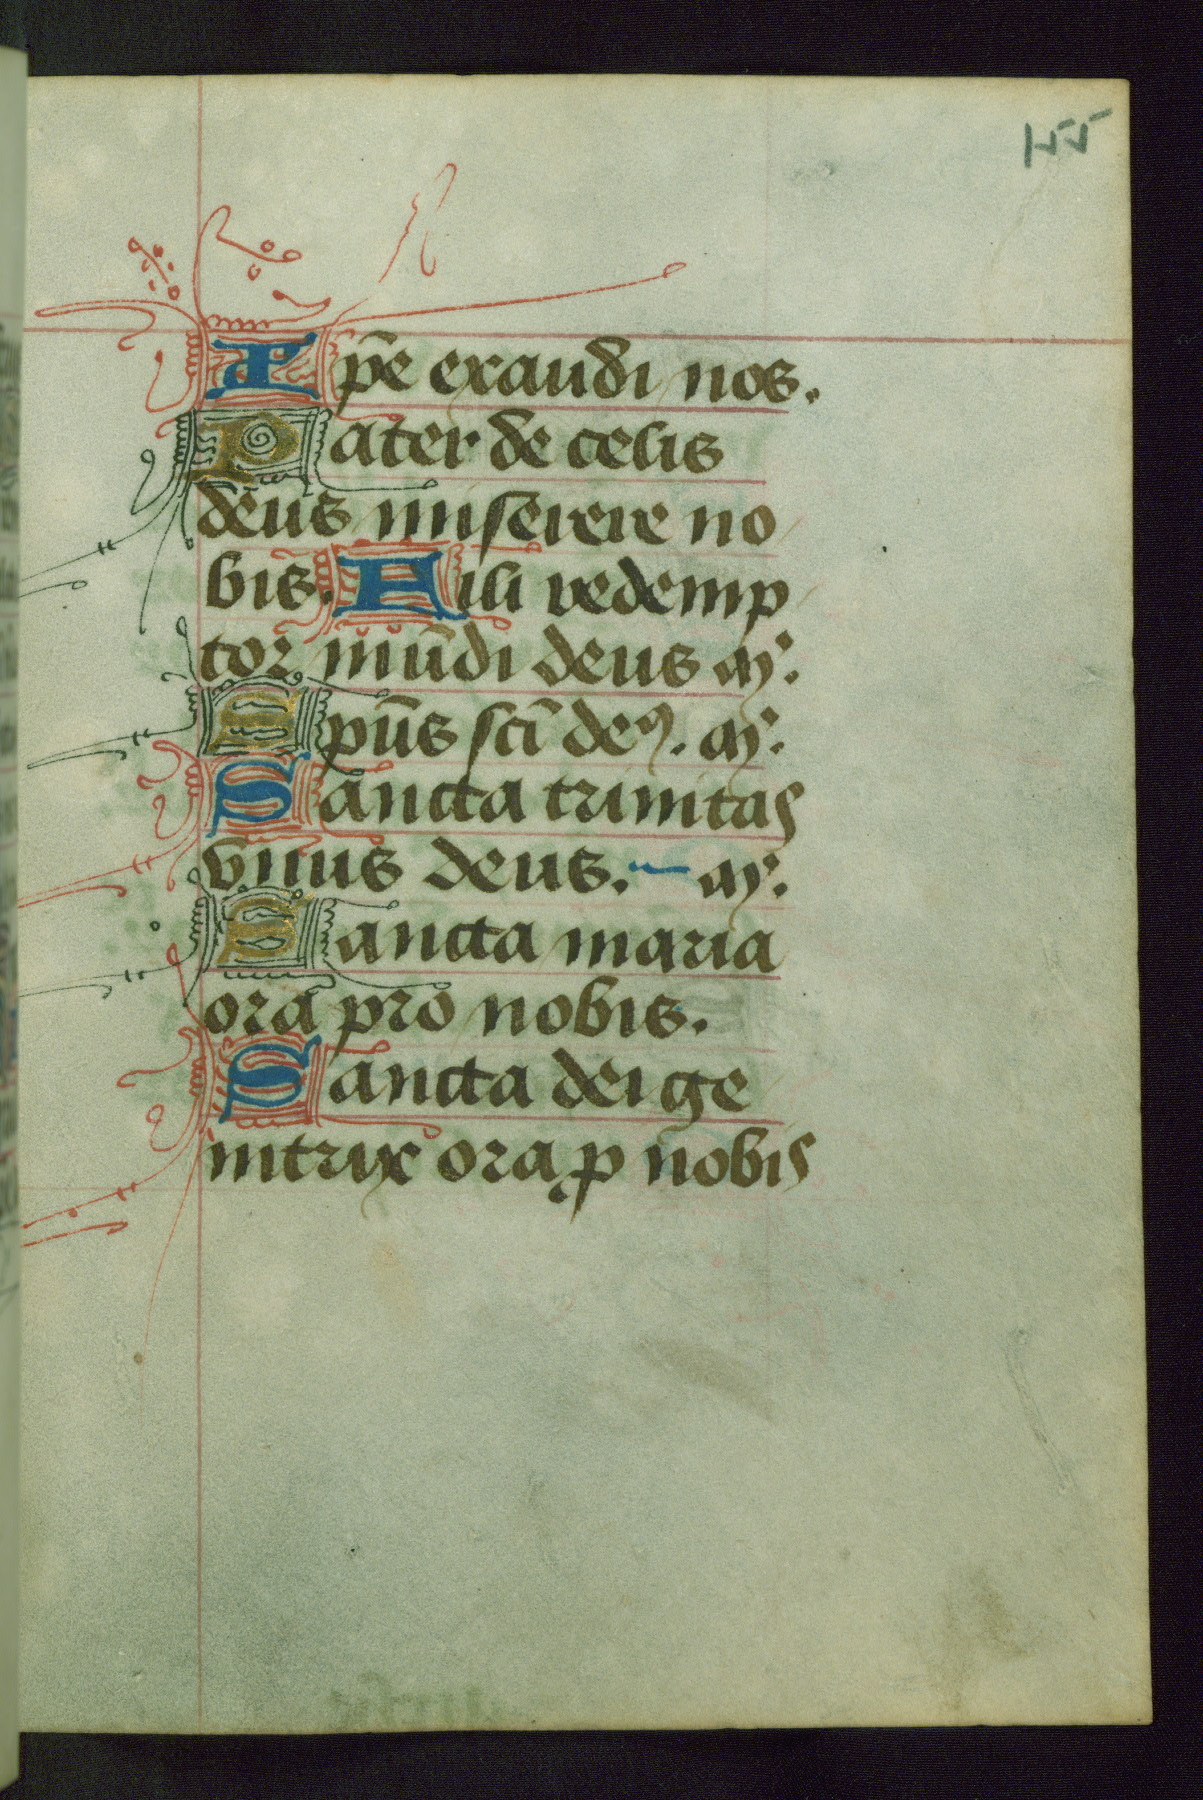 155
Xpē exaudi nos.
Pater de celis
deus miserere no
bis. Fili redemp
tor mūdi deus mˢ.
Spūs scī deꝰ. mˢ.
Sancta trinitas
vnus deus. mˢ.
Sancta maria
ora pro nobis.
Sancta dei ge
nitrix ora p nobis